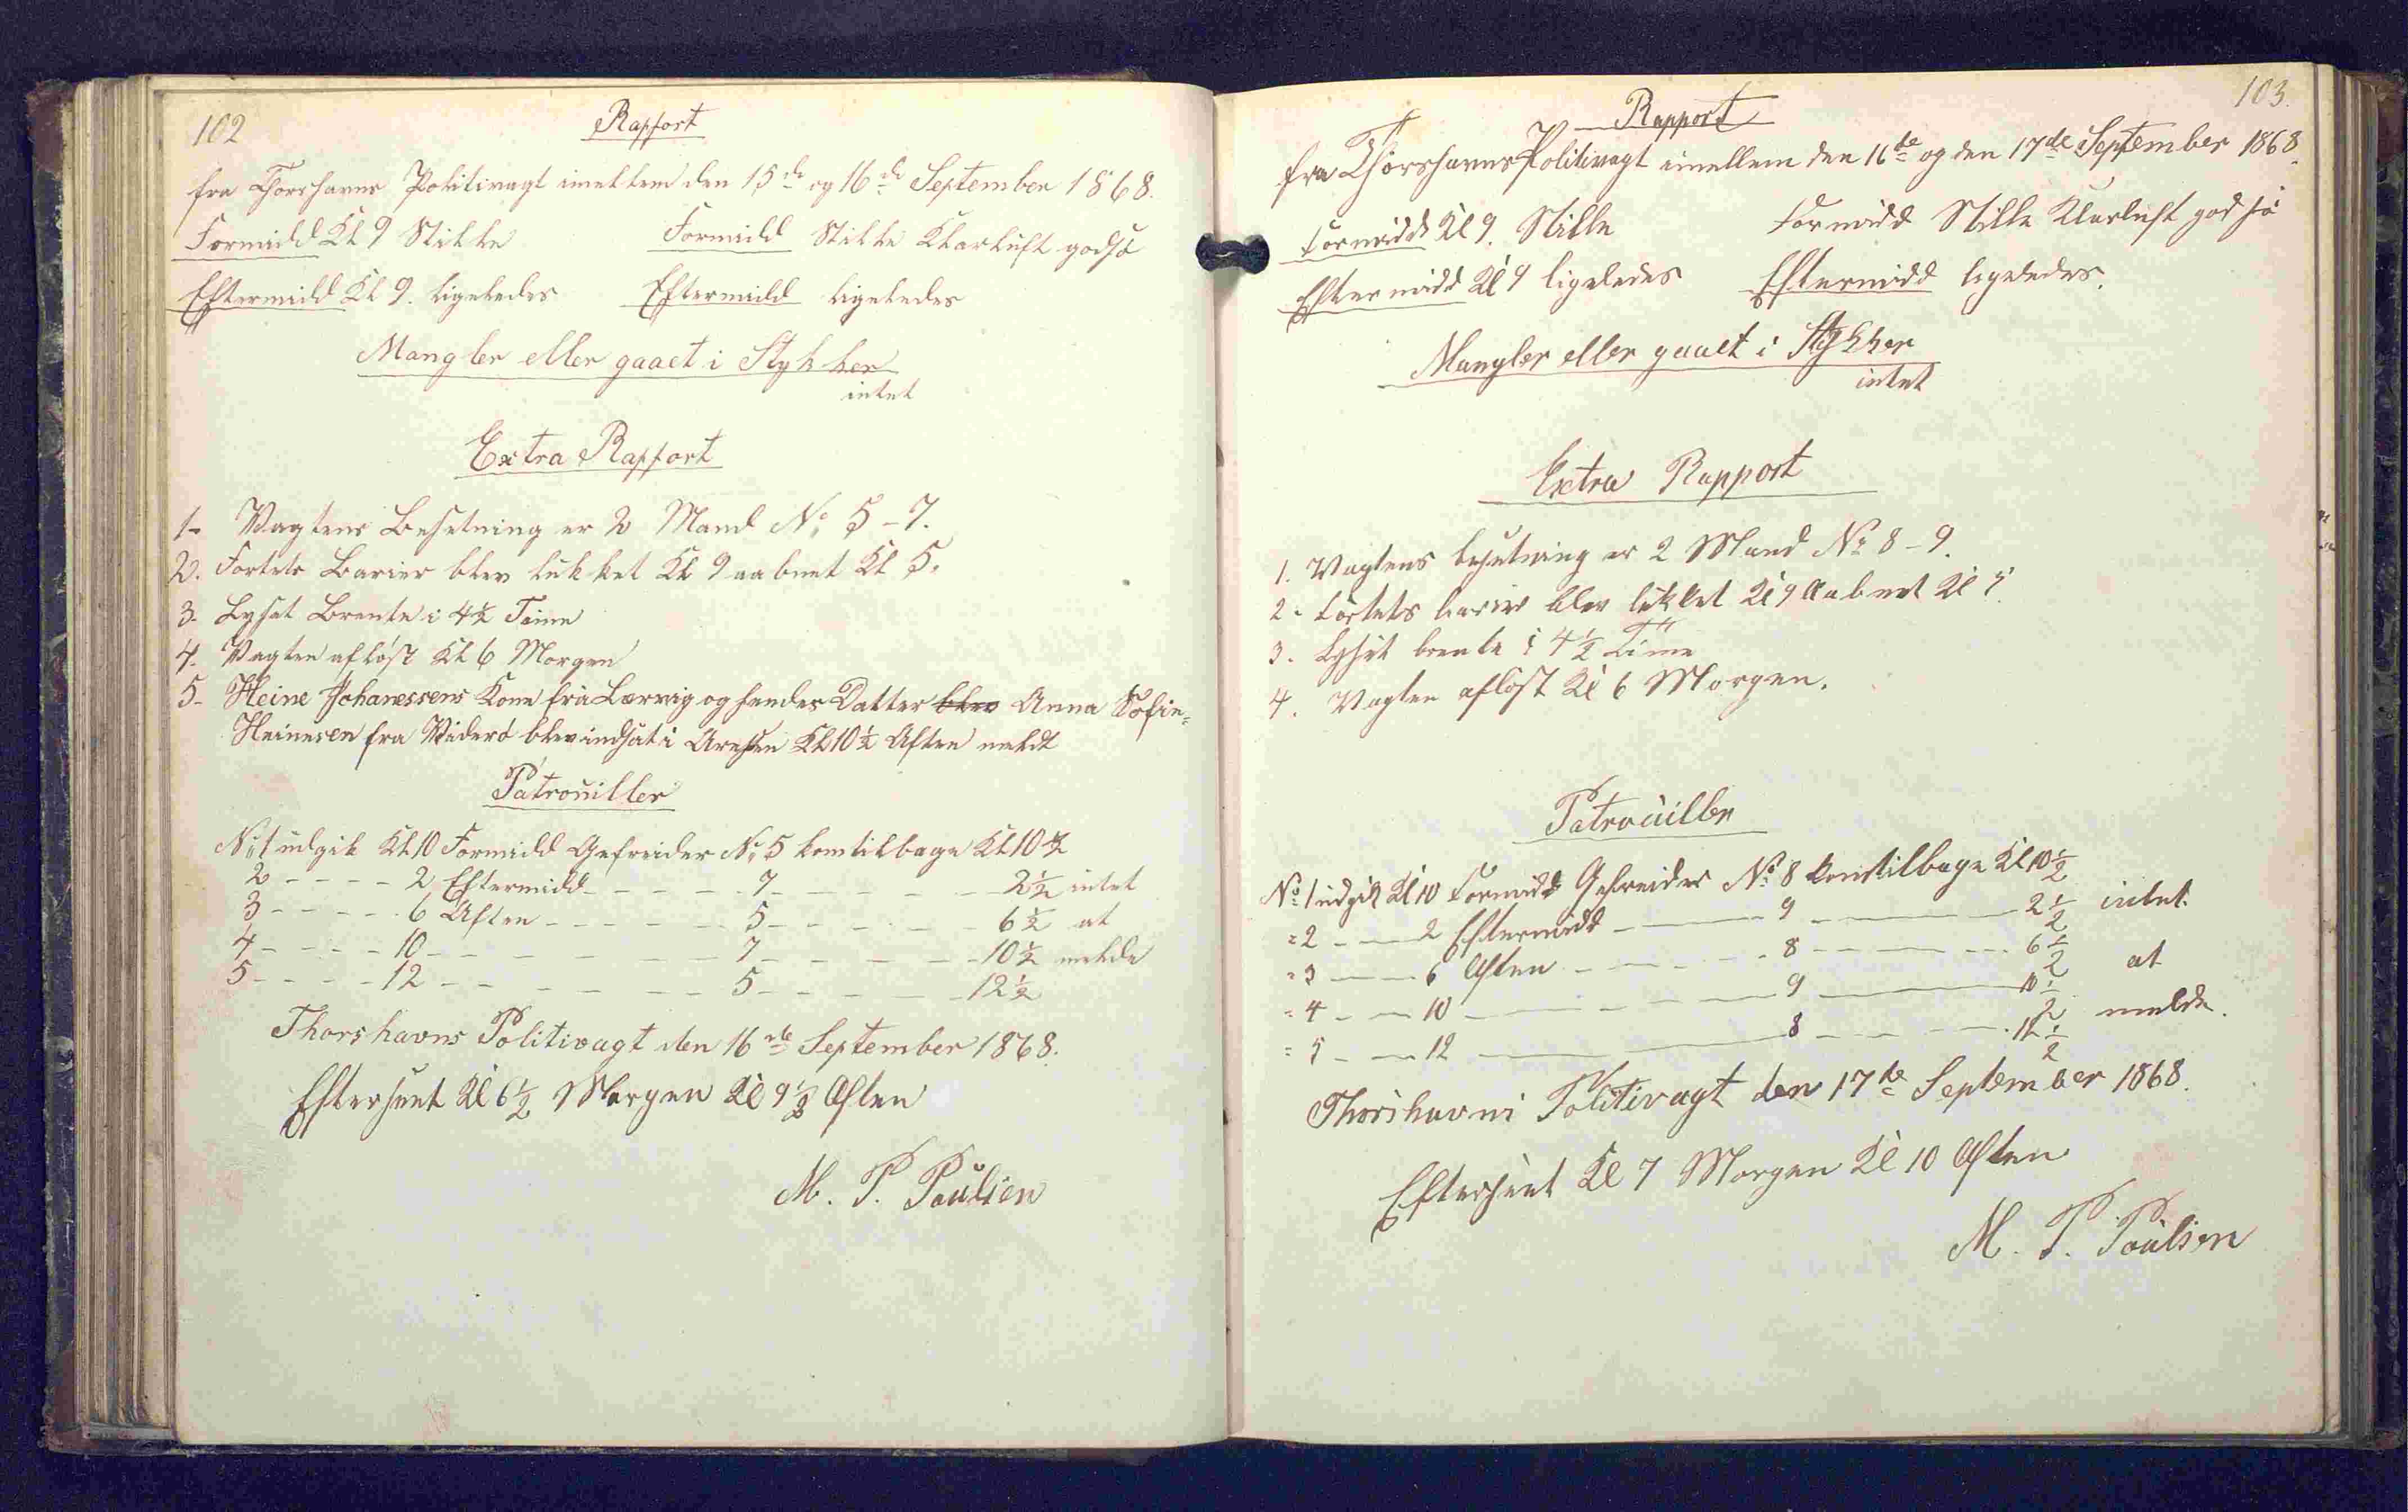 102
Rapport
fra Thorshavns Politivagt imellem den 15de og 16de September 1868.
Formidd Kl 9 Stille Formidd Stille Klarluft god Sö
Eftermidd Kl 9. ligeledes Eftermidd ligeledes
Mangler eller gaaet i Stykker
intet
Extra Rapport
1- Vagtens Besetning er 2 Mand No 5-7.
2. Fortets Barier blev lukket Kl 9 aabnet Kl 5.
3- Lyset Brente i 4½ Time
4- Vagten aflöst Kl 6 Morgen
5- Heine Johanessens Kone fra Lervig og hendes Datter blev Anna Sofie-
Heinesen fra Viderö blev indsat i Aresten Kl 10½ Aften meldt
Patrouiller
No 1 udgik Kl 10 Formidd Gefreider No 5 kom tilbage Kl 10½
2 - - - - 2 Eftermidd - - - - 7 - - - - 2½ intet
3 - - - - 6 Aften - - - - 5 - - - - 6½ at
4 - - - - 10 - - - - 7 - - - - 10½ melde
5 - - - - 12 - - - - 5 - - - - 12½
Thorshavns Politivagt den 16de September 1868.
Efterseet Kl 6½ Morgen Kl 9½ Aften
M. P. Poulsen
103.
Rapport
fra Thorshavns Politivagt imellem den 16de og den 17de September 1868.
Formidd Kl 9. Stille Formidd Stille Klarluft god Sö
Eftermidd Kl 9 ligeledes Eftermidd ligeledes.
Mangler eller gaaet i Stykker
intet
Extra Rapport
1. Vagtens besetning er 2 Mand No 8-9.
2- Fortets barier blev lukket Kl 9 Aabnet Kl 5
3. Lyset brente i 4½ Time
4. Vagten aflöst Kl 6 Morgen.
Patrouiller
No 1 udgik Kl 10 Formidd Gefreider No 8 kom tilbage Kl 10½
=2 - - 2 Eftermidd - - 9 - - 2½ intet.
=3 - - 6 Aften - - 8 - - 6½ at
=4 - - 10 - - 9 - - 10½ melde.
=5 - - 12 - - 8 - - 12½
Thorshavns Politivagt den 17de September 1868.
Efterseet Kl 7 Morgen Kl 10 Aften
M. P. Poulsen